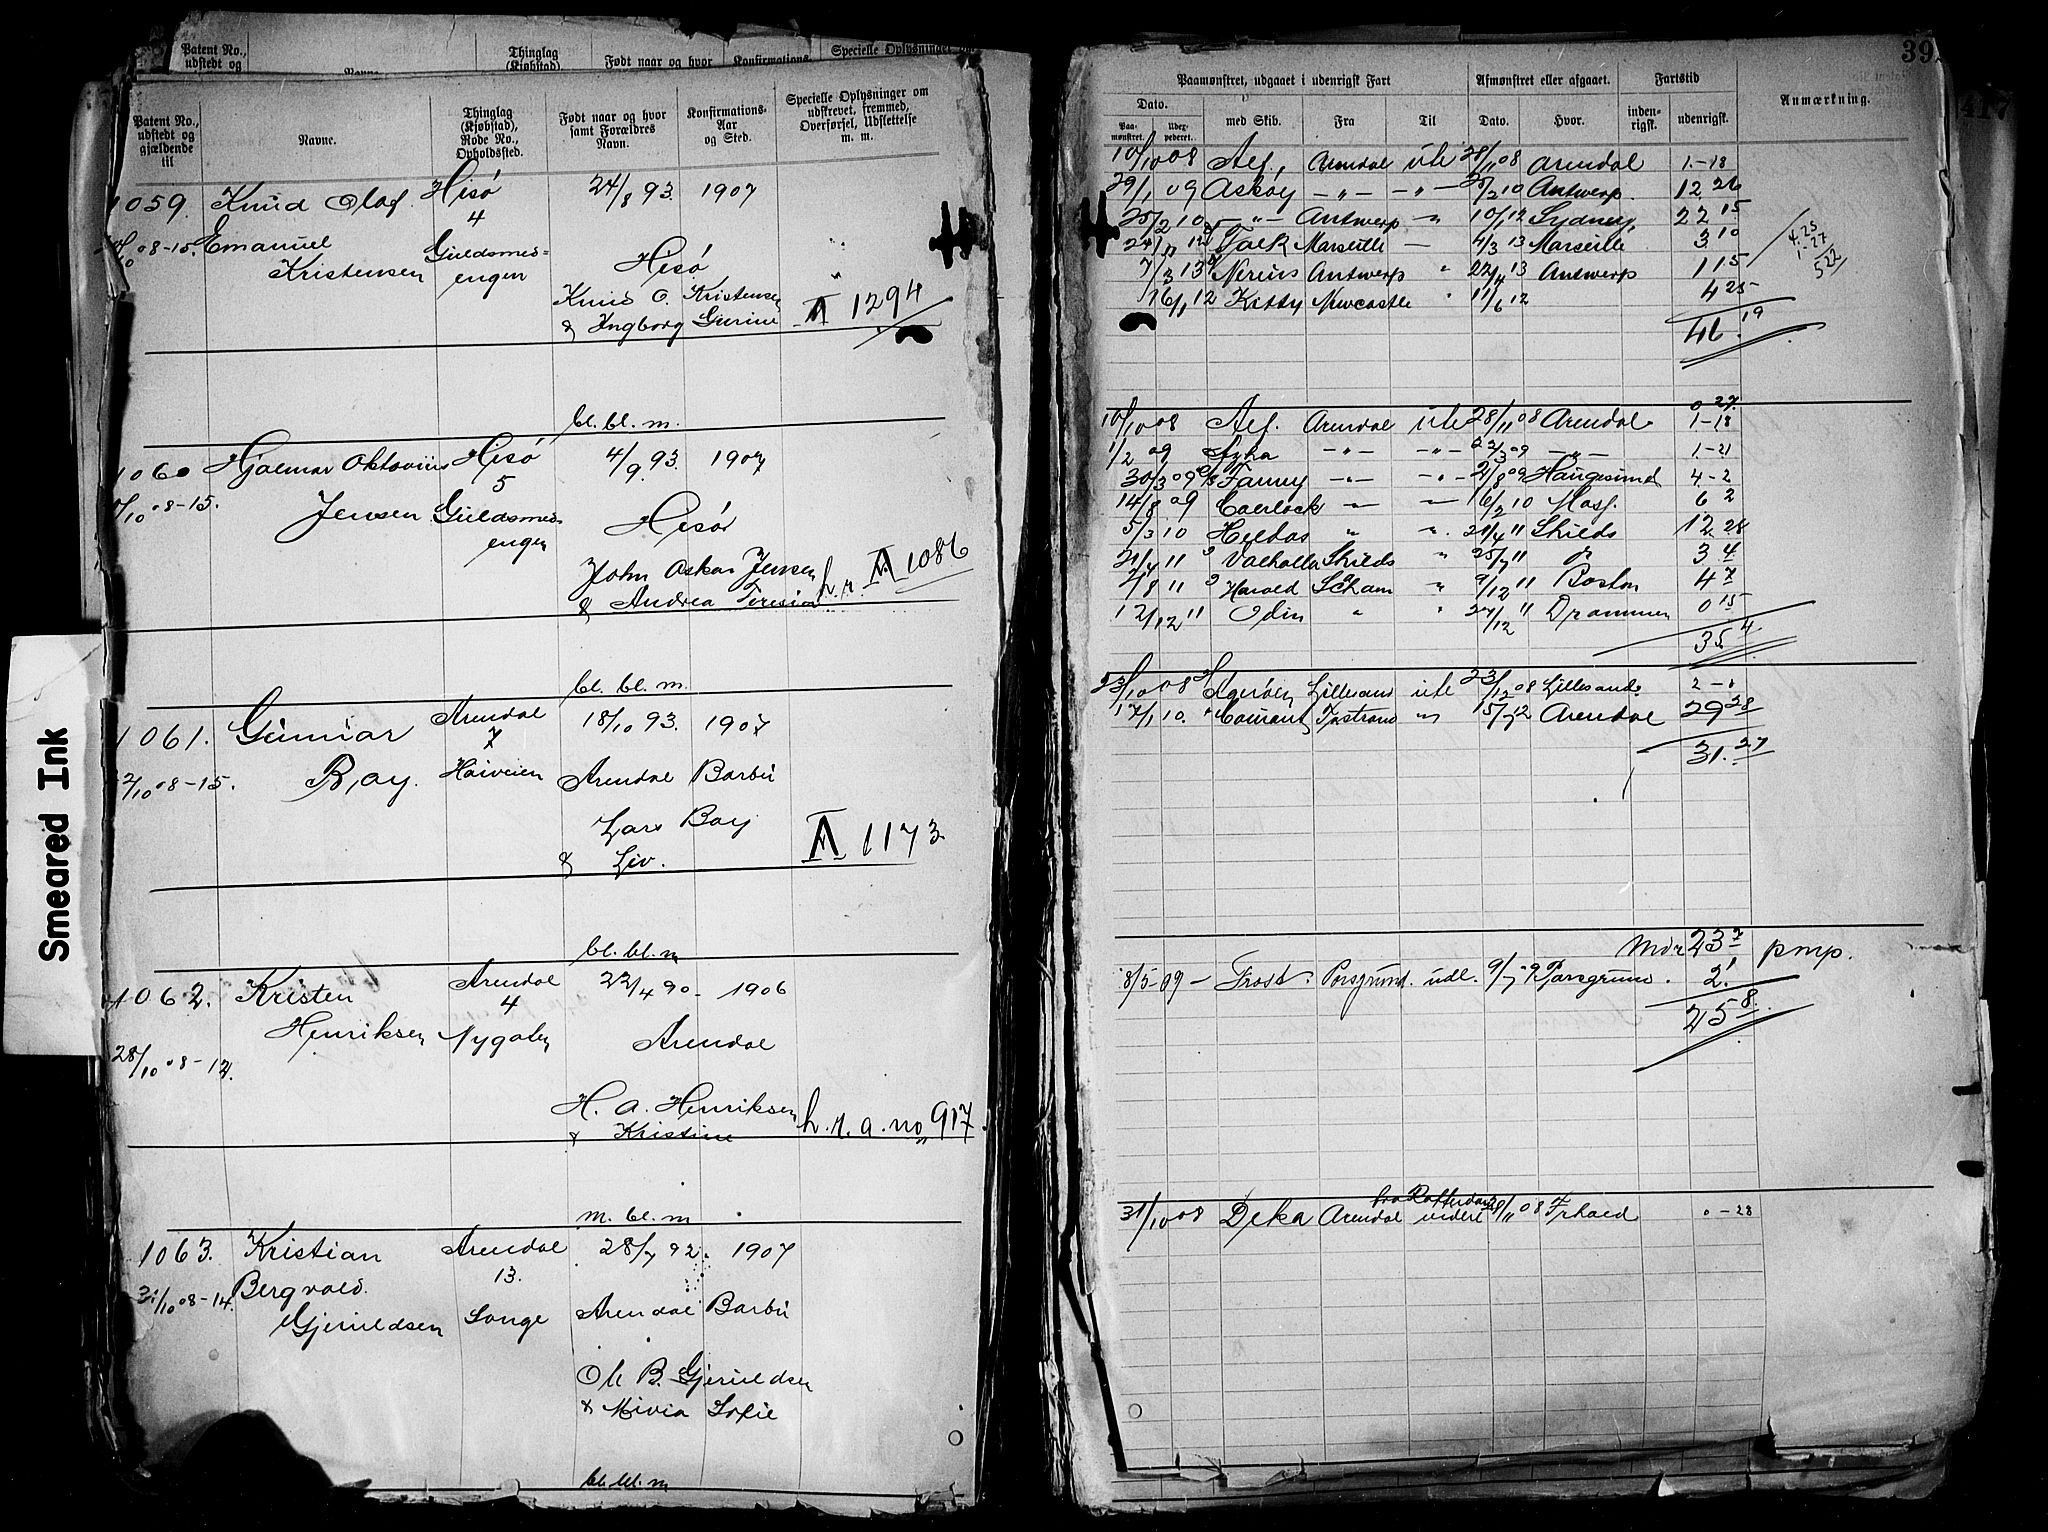 Smeared Ink
Patent No., udstedt og
Navne.
Thinglag (Kjøbstad)
Født naar og hvor
Konfirmations-
Specielle Oplysninger om
Patent No., udstedt og gjældende til
Navne.
Thinglag (Kjøbstad), Rode No., Opholdssted.
Født naar og hvor samt Forældres Navn.
Konfirmations-Aar og Sted.
Specielle Oplysninger om udskrevet, fremmed, Overførsel, Udslettelse m. m.
1059. Knud Olaf Hisø 24/8 93. 1907
4
08-15. Emanuel Guldsmed-
Kristensen engen Hisø
Knud O. Kristensen
& Ingborg Gurine A 1294
bl. bl. m.
1060 Hjalmar Oktavius Hisø 4/9 93. 1907
5
7/10 08-15. Jensen Guldsmed- Hisø
engen
John Askar Jensen
& Andrea Teresia h.r. A 1086
bl. bl. m.
1061. Gunnar Arendal 18/10 93. 1907
7
08-15. Bay. Høiveien Arendal Barbu
Lars Bay
& Liv. A 1173
bl. bl. m
1062. Kristen Arendal 22/4 90 - 1906
4
Henriksen Nygaten Arendal
28/10 08-12.
H. A. Henriksen
& Kristine h.r.a. no 917
m. bl. m
1063. Kristian Arendal 28/7 92. 1907
13.
31/10 08-14. Bergvald
Gjeruldsen Songe Arendal Barbu
Ole B. Gjeruldsen
& Mivia Sofie
bl. bl. m
39
417
Paamønstret, udgaaet i udenrigsk Fart
Afmønstret eller afgaaet.
Fartstid
Anmærkning.
Dato.
Paamønstret.
Udexpederet.
med Skib.
Fra
Til
Dato.
Hvor.
indenrigsk.
udenrigsk.
10/10 08 Alf, Arendal ute 28/11 08 Arendal 1.-18
29/1 09 Askøy -"- -"- 25/2 10 Antwerp. 12 26
25/2 10 -"- Antwerp " 10/1 12 Sydney, 22 15
Falk Marseille - 4/3 13 Marseille 3 10
7/3 13 Nereus Antwerp " 22/4 13 Antwerp 1 15
16/1 12 Kitty Newcastle " 11/6 12 4 25
46.19
4.25
1.27
522
0 27.
10/10 08 Alf. Arendal ute 28/11 08 Arendal 1-18
1/2 09 -"- -"- 22/3 09 -"- 1-21
30/3 09 Fanny -"- -"- 2/8 09 Haugesund 4-2
14/8 09 Coerlock -"- " 16/2 10 6 2
5/3 10 " " 21/4 11 Shields 12 28
21/4 11 Valhalla Shields " 25/7 11 3 4
2/8 11 Harald " 9/12 11 Boston 4 7
12/12 11 Odin " " 27/12 11 Drammen 0 15
35 4
23/10 08 Agerøen Lillesand ute 23/12 08 Lillesand. 2-0
17/1 10. Courant " 15/7 12 Arendal 29 28
31.27
Mdr 23 7 pmp.
8/5-09 - Frost. Porsgrund. udl. 9/7 -9 Porsgrund. 2 1
25 8
31/10 08 Deka Arendal fra Rotterdam videre 28/11 08 0-28